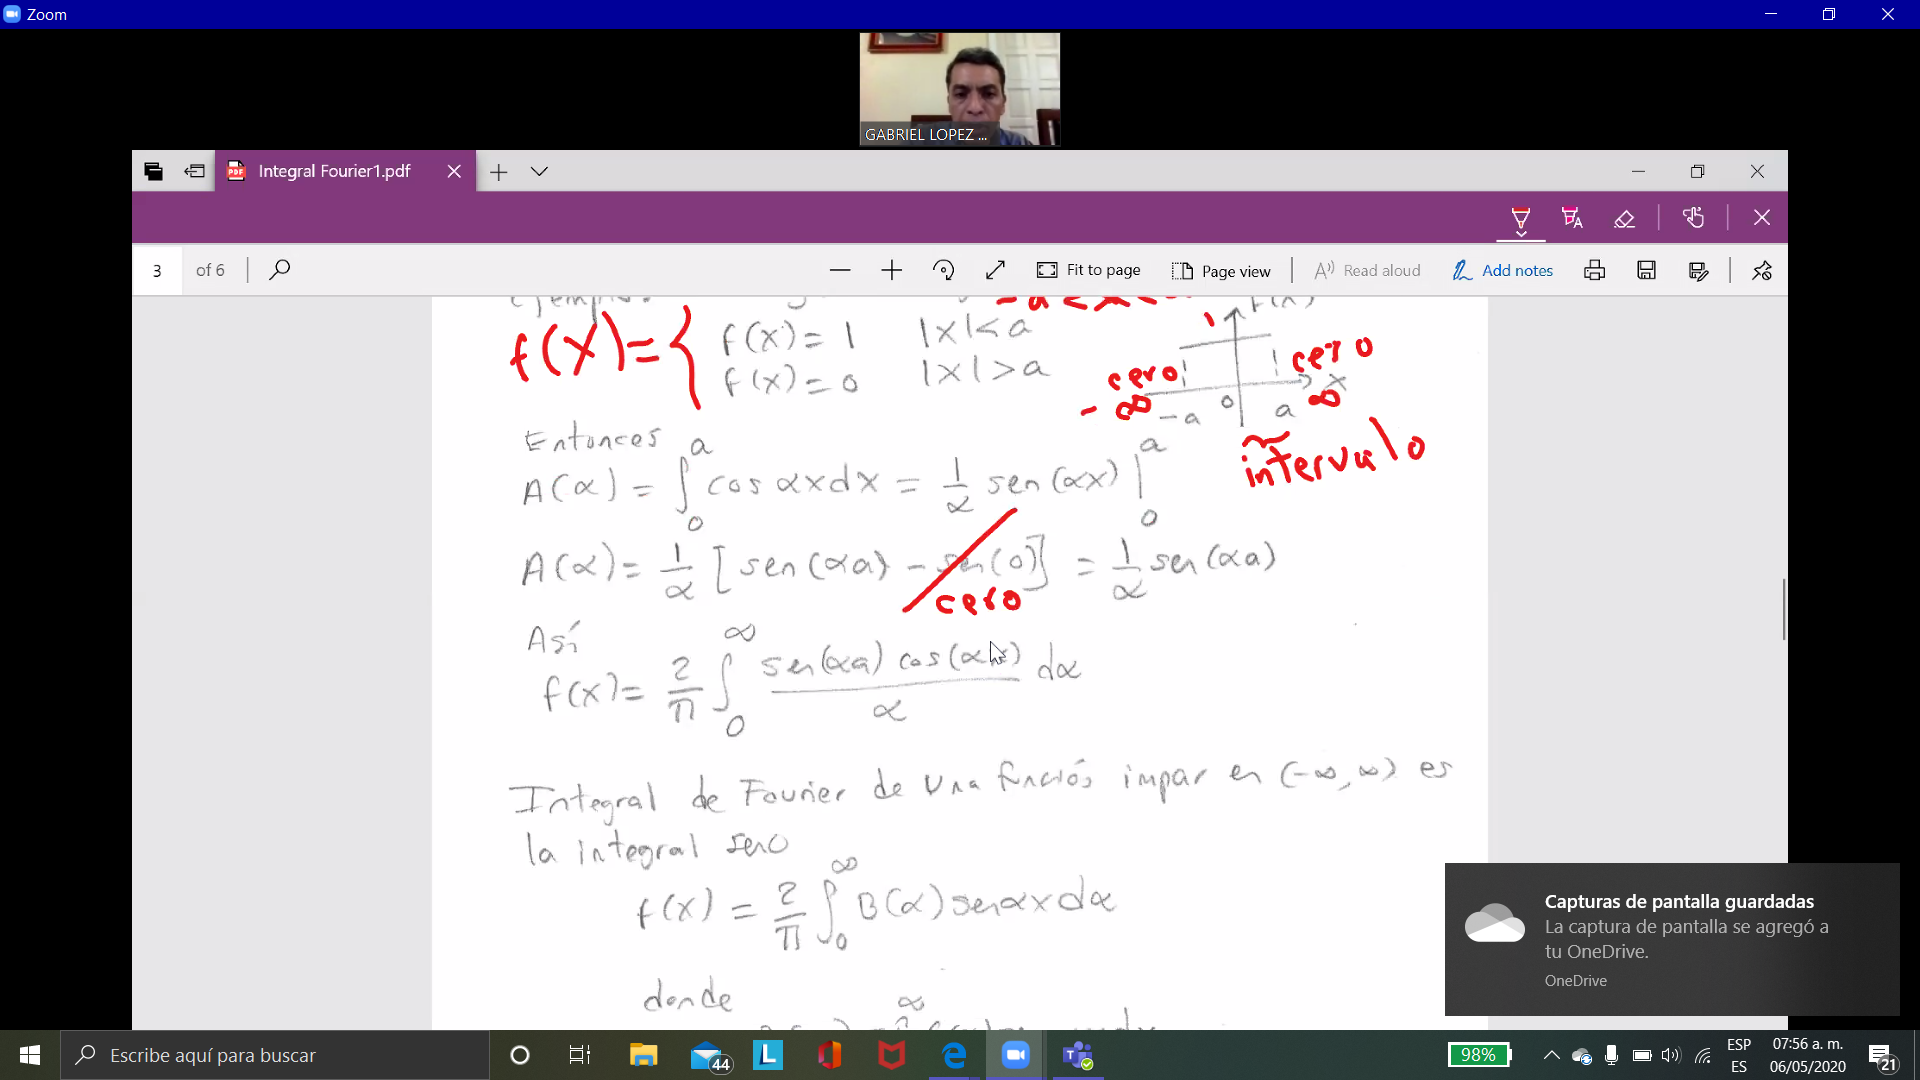 Zoom
GABRIEL LOPEZ ...
Integral Fourier1.pdf
3 of 6
Fit to page
Page view
Read aloud
Add notes
f(x)={ f(x)=1 |x|<a
f(x)=0 |x|>a
1
f(x)
cero
cero
-∞
∞
x
-a
0
a
intervalo
Entonces
A(α) = ∫₀ᵃ cos αxdx = 1/α sen (αx) |₀ᵃ
A(α)= 1/α [sen(αa) - sen(0)] = 1/α sen(αa)
cero
Así
f(x)= 2/π ∫₀^∞ sen(αa) cos(αx)/α dα
Integral de Fourier de una función impar en (-∞,∞) es
la integral seno
f(x) = 2/π ∫₀^∞ B(α) senαxdα
donde
Capturas de pantalla guardadas
La captura de pantalla se agregó a
tu OneDrive.
OneDrive
Escribe aquí para buscar
44
98%
ESP
ES
07:56 a. m.
06/05/2020
21